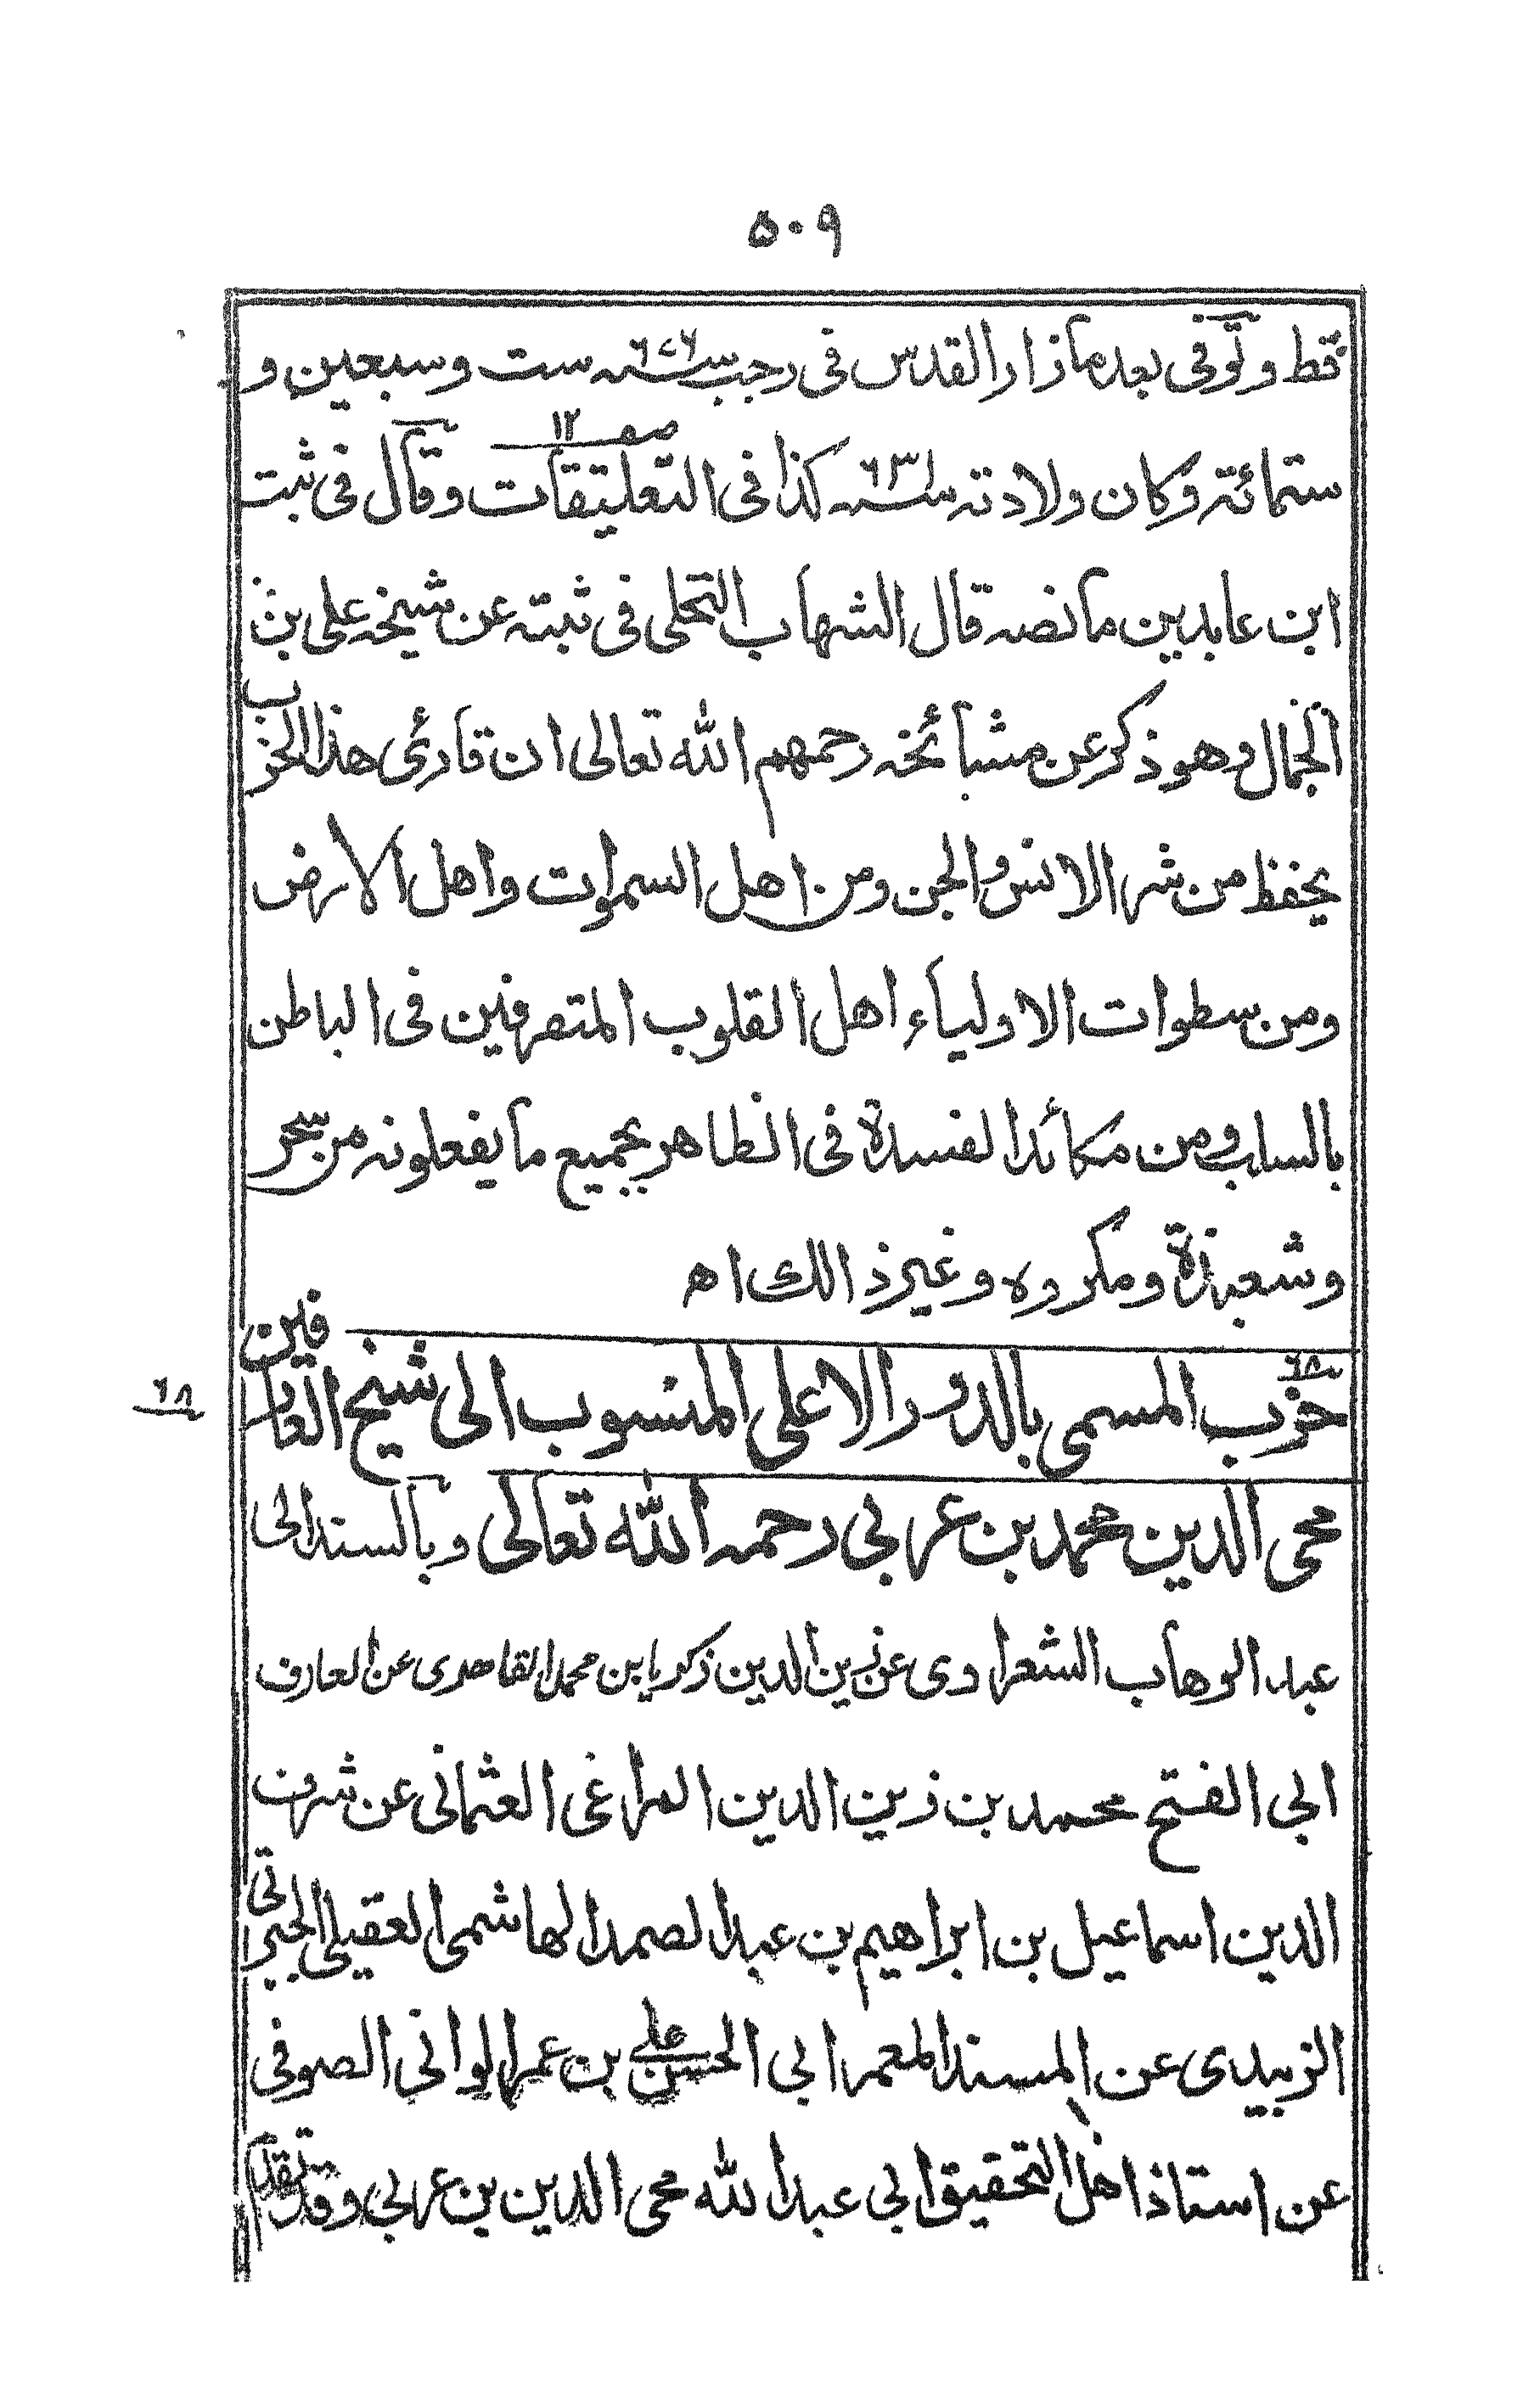 ٥٠٩
قط وتوفى بعد ما زار القدس فى رجب سنه ٦٧٦ ست وسبعين و
ستمائة وكان ولادته سنه ٦٣١ كذا فى التعليقات صـ ١٢ وقال فى ثبت
ابن عابدين ما نصه قال الشهاب النخلى فى ثبته عن شيخه على بن
الجمال وهو ذكر عن مشائخه رحمهم الله تعالى ان قارئ هذا الحزب
يحفظ من شر الانس والجن ومن اهل السموات واهل الارض
ومن سطوات الاولياء اهل القلوب المتصرفين فى الباطن
بالسلب ومن مكائد الفسدة فى الظاهر بجميع ما يفعلونه من سحر
وشعبذة ومكروه وغير ذالك اه
٦٨
حزب المسمى بالدور الاعلى المنسوب الى شيخ العارفين
٦٨
محى الدين محمد بن عربي رحمه الله تعالى وبالسند الى
عبد الوهاب الشعراوى عن زين الدين زكريا بن محمد القاهرى عن العارف
ابي الفتح محمد بن زين الدين المراغى العثمانى عن شرف
الدين اسماعيل بن ابراهيم بن عبد الصمد الهاشمى العقيلى الجبرتى
الزبيدى عن المسند المعمر ابي الحسن على بن عمر الوانى الصوفى
عن استاذ اهل التحقيق ابي عبد الله محى الدين بن عربي وقد تقدم